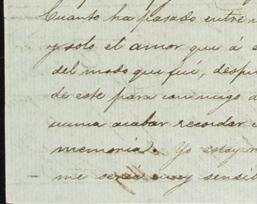 Cuanto ha pasado entre
y solo el amor que á
del modo que fué, despu
de este para conmigo
acabar recordar
memoria. Yo estoy
me será muy sensib